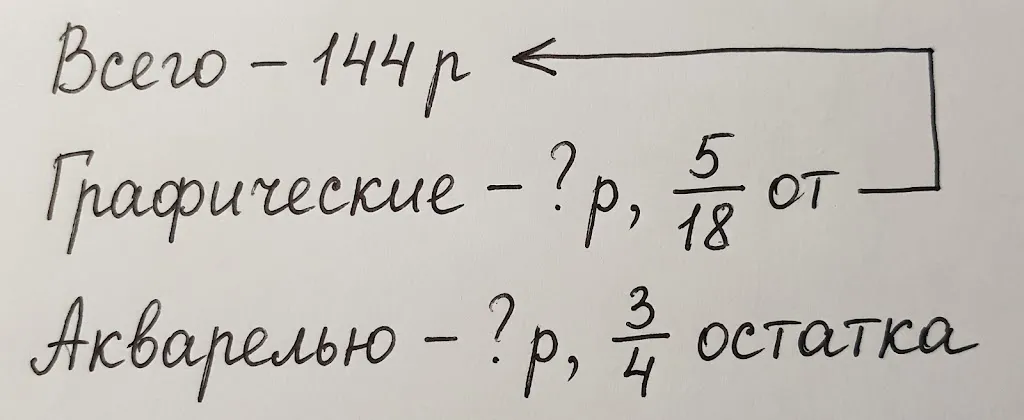 Всего – 144 р
Графические – ? р, 5/18 от
Акварелью – ? р, 3/4 остатка